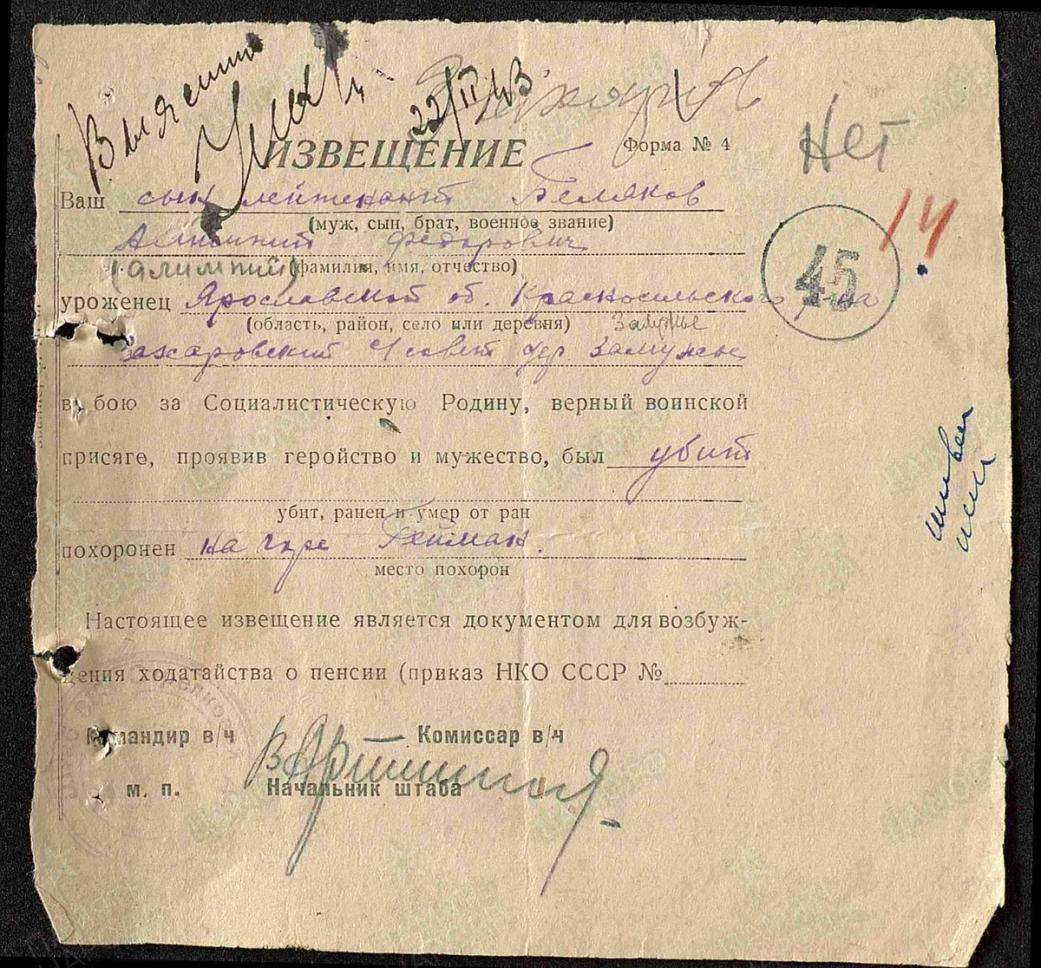 22/II 43
Нет
ИЗВЕЩЕНИЕ Форма № 4
Ваш сын лейтенант Беляков
(муж, сын, брат, военное звание)
14
45
Федорович
(алимпий) (фамилия, имя, отчество)
уроженец Ярославской об. Красносельского р-на
(область, район, село или деревня) Замужье
Захаровский с/совет дер Замужье
в бою за Социалистическую Родину, верный воинской
присяге, проявив геройство и мужество, был убит
убит, ранен и умер от ран
похоронен на горе Гейман.
место похорон
Настоящее извещение является документом для возбуж-
дения ходатайства о пенсии (приказ НКО СССР №
Командир в/ч Комиссар в/ч
м. п. Начальник штаба